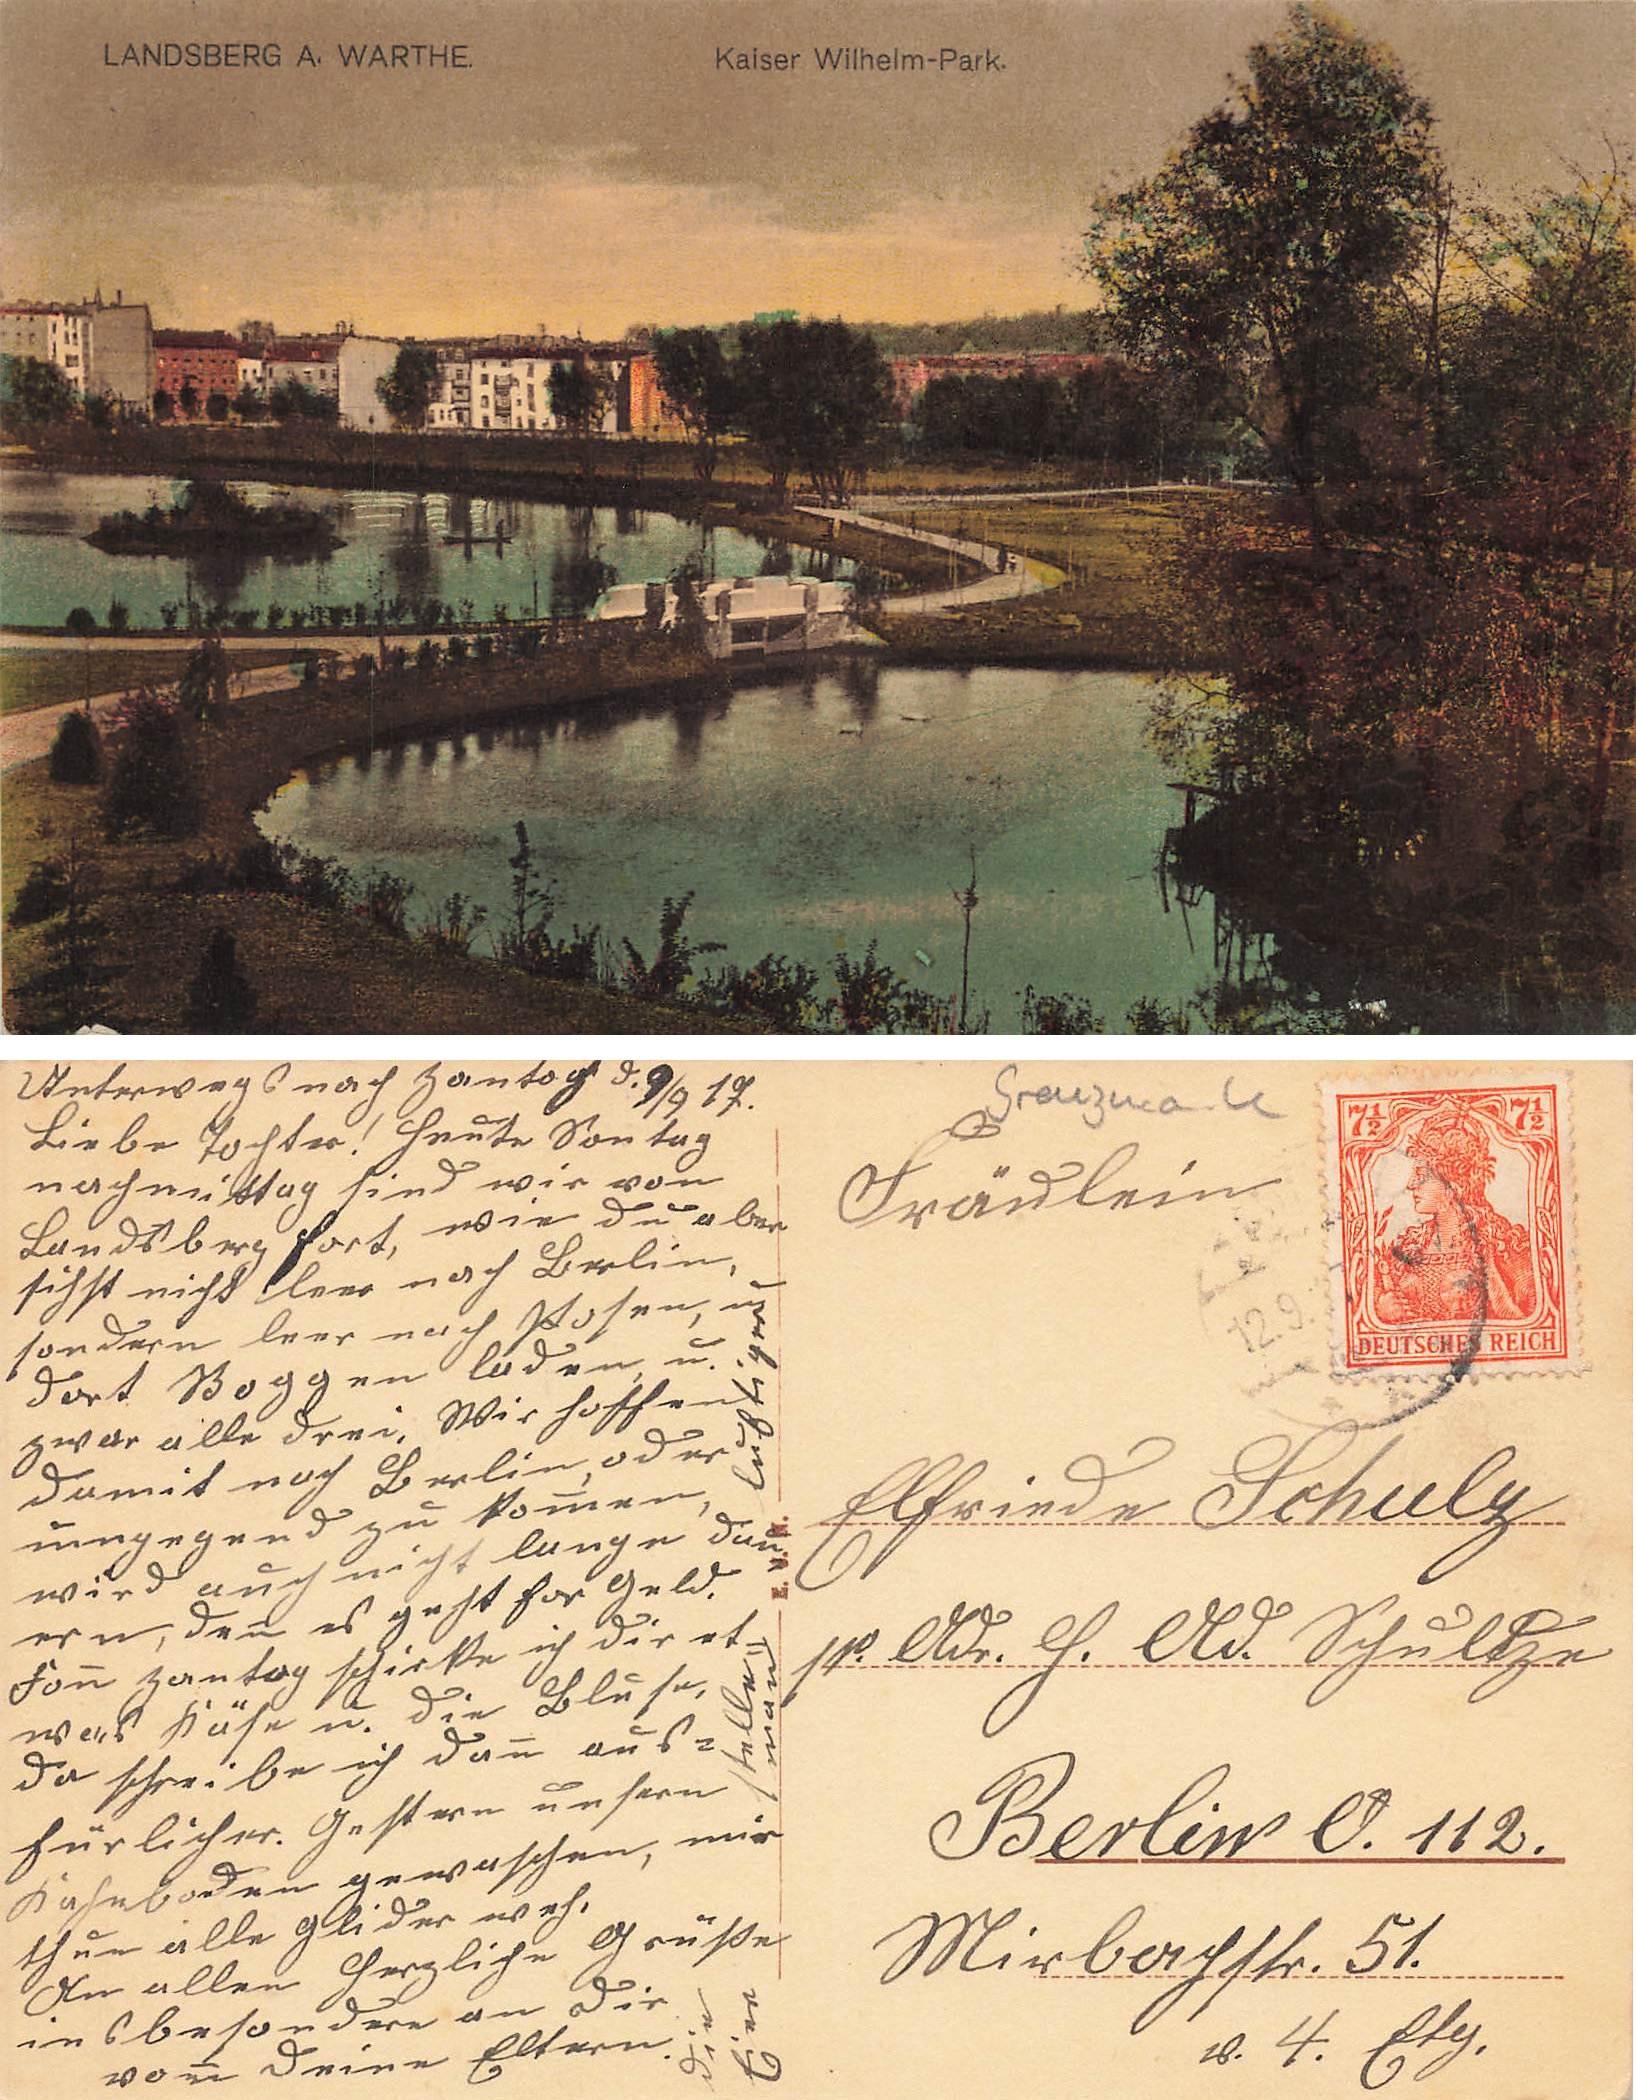 LANDSBERG A. WARTHE.
Kaiser Wilhelm-Park.
Unterwegs nach Zantoch d. 9/9 17.
Liebe Tochter! Heute Sontag
nachmittag sind wir von
Landsberg fort, wie du aber
sihst nicht leer nach Berlin,
sondern leer nach Posen, u
dort Roggen laden, u.
zwar alle drei. Wir hoffen
damit nach Berlin, oder
umgegend zu kom̄en,
wird auch nicht lange dau-
ern, den̄ es geht for Geld.
Fon̄ Zantoch schicke ich dir et-
was Käse u. die Bluse,
da schreibe ich dan̄ aus-
fürlicher. Gestern unsern
Kahnboden gewaschen, mir
thun alle Glider weh.
An allen herzliche Grüße
insbesondere an Dir
vom̄ Deine Eltern.
die Eier
stellen
man
lustiger
Grenzmark
Fräulein
Elfriede Schulz
pr. Adr. H. Ad. Schultze
Berlin O. 112.
Mirbachstr. 51.
v. 4. Etg.
7½ 7½
DEUTSCHES REICH
12.9.